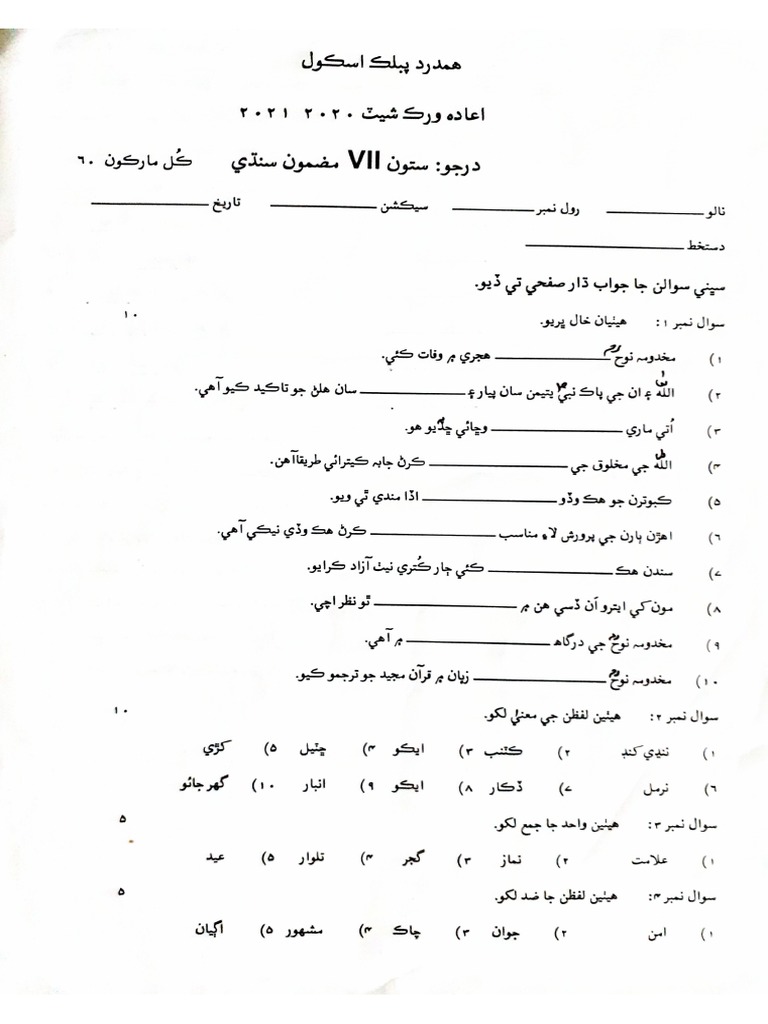 همدرد پبلڪ اسڪول
اعاده ورڪ شيٽ ۲۰۲۰ ۲۰۲۱
درجو: ستون VII مضمون سنڌي ڪُل مارڪون ۶۰
نالو ________ رول نمبر ________ سيڪشن ________ تاريخ ________
دستخط ________
سڀني سوالن جا جواب ڌار صفحي تي ڏيو.
سوال نمبر ۱: هيٺيان خال ڀريو. ۱۰
۱) مخدوم نوحؒ ________ هجري ۾ وفات ڪئي.
۲) اللهﷻ ۽ ان جي پاڪ نبيؐ يتيمن سان پيار ۽ ________ سان هلڻ جو تاڪيد ڪيو آهي.
۳) اُتي ماري ________ وڇائي ڇڏيو هو.
۴) اللهﷻ جي مخلوق جي ________ ڪرڻ جا به ڪيترائي طريقا آهن.
۵) ڪبوترن جو هڪ وڏو ________ اڏا مندي ٿي ويو.
۶) اهڙن ٻارن جي پرورش لاءِ مناسب ________ ڪرڻ هڪ وڏي نيڪي آهي.
۷) سندن هڪ ________ ڪئي ڄار ڪُتري نيٺ آزاد ڪرايو.
۸) مون کي ايترو اَن ڏسي هن ۾ ________ ٿو نظر اچي.
۹) مخدوم نوحؒ جي درگاھ ________ ۾ آهي.
۱۰) مخدوم نوحؒ ________ زبان ۾ قرآن مجيد جو ترجمو ڪيو.
سوال نمبر ۲: هيٺين لفظن جي معنيٰ لکو. ۱۰
۱) ننڍي کنڊ ۲) ڪٽنب ۳) ايڪو ۴) ڇٽيل ۵) ڪڙي
۶) نرمل ۷) ڏڪار ۸) ايڪو ۹) انبار ۱۰) گهرجائو
سوال نمبر ۳: هيٺين واحد جا جمع لکو. ۵
۱) علامت ۲) نماز ۳) گجر ۴) تلوار ۵) عيد
سوال نمبر ۴: هيٺين لفظن جا ضد لکو. ۵
۱) امن ۲) جوان ۳) چاڪ ۴) مشهور ۵) اڳيان